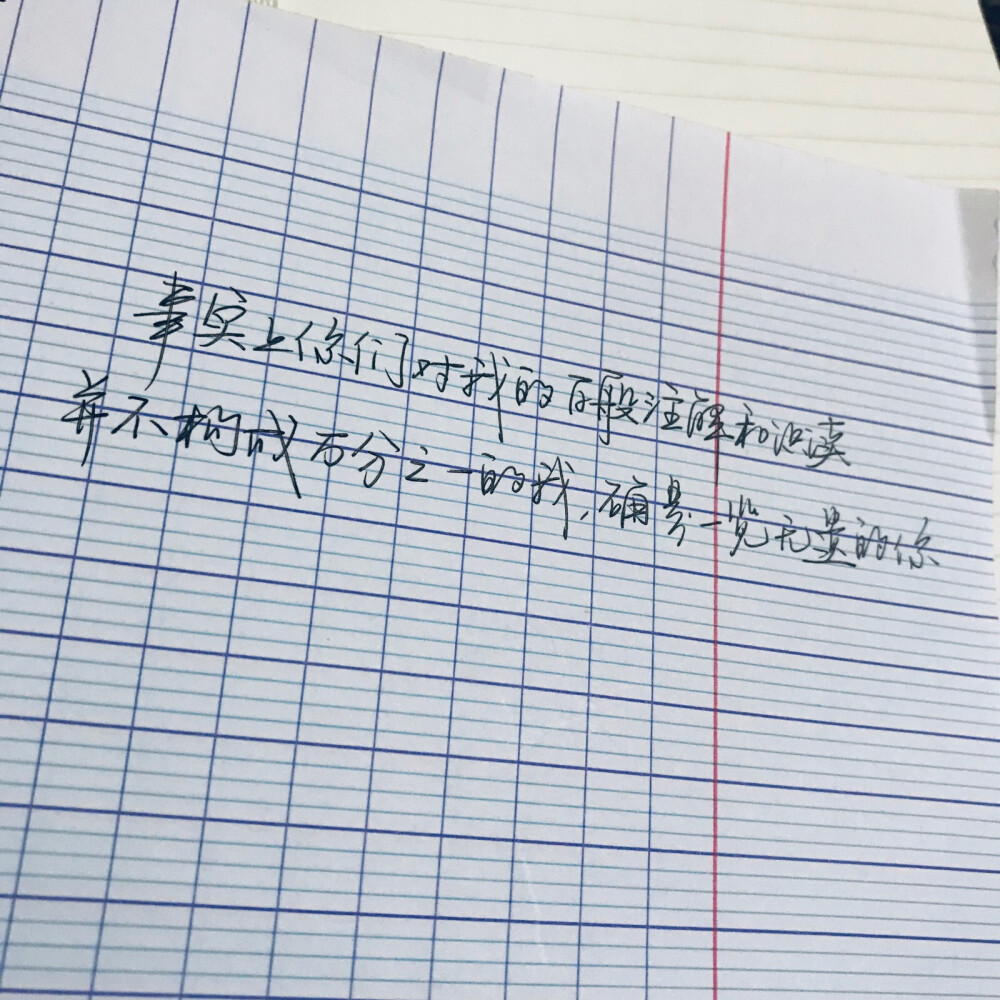 事实上你们对我的百般注解和识读
并不构成万分之一的我,确是一览无遗的你